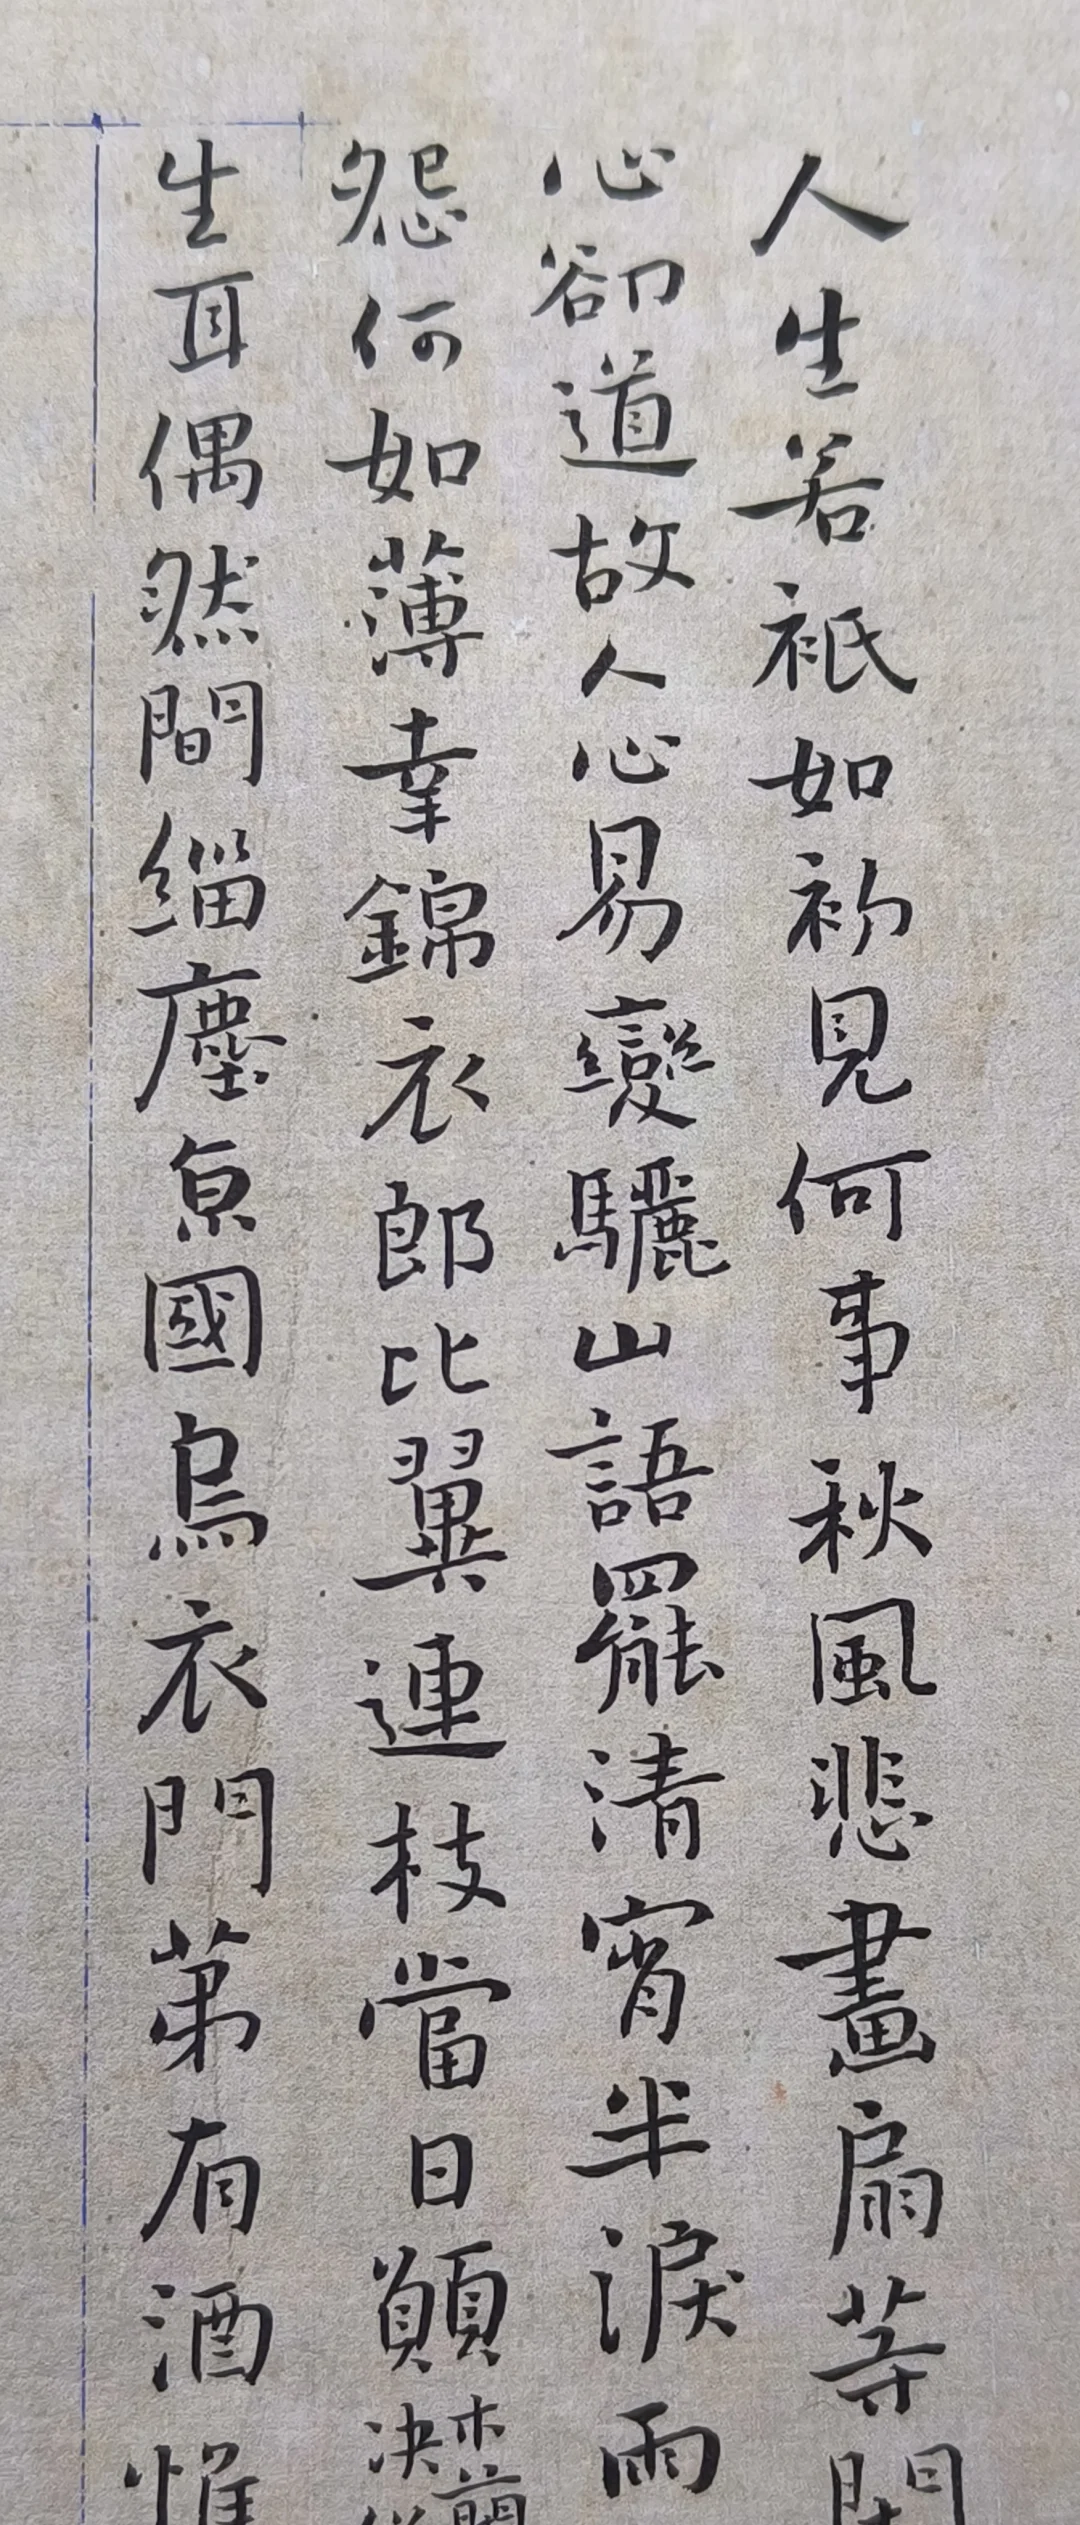 人生若祇如初見何事秋風悲畫扇等閒
心卻道故人心易變驪山語罷清宵半淚雨
怨何如薄幸錦衣郎比翼連枝當日願
木蘭
決
生耳偶然間緇塵京國烏衣門第有酒惟